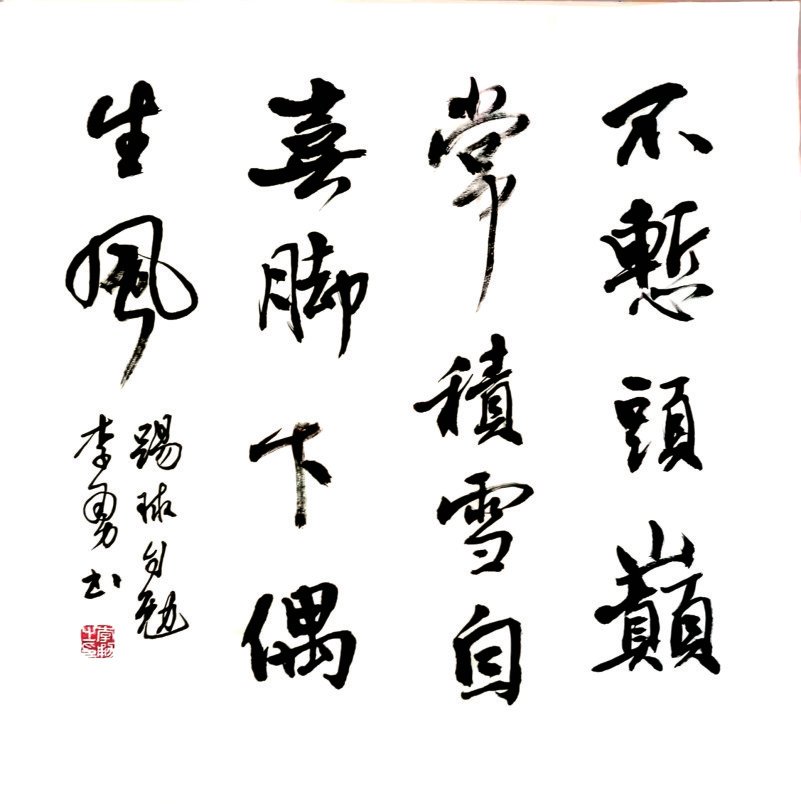 不慙頭巔
常積雪自
喜脚下偶
生風
踢球自勉
李勇书